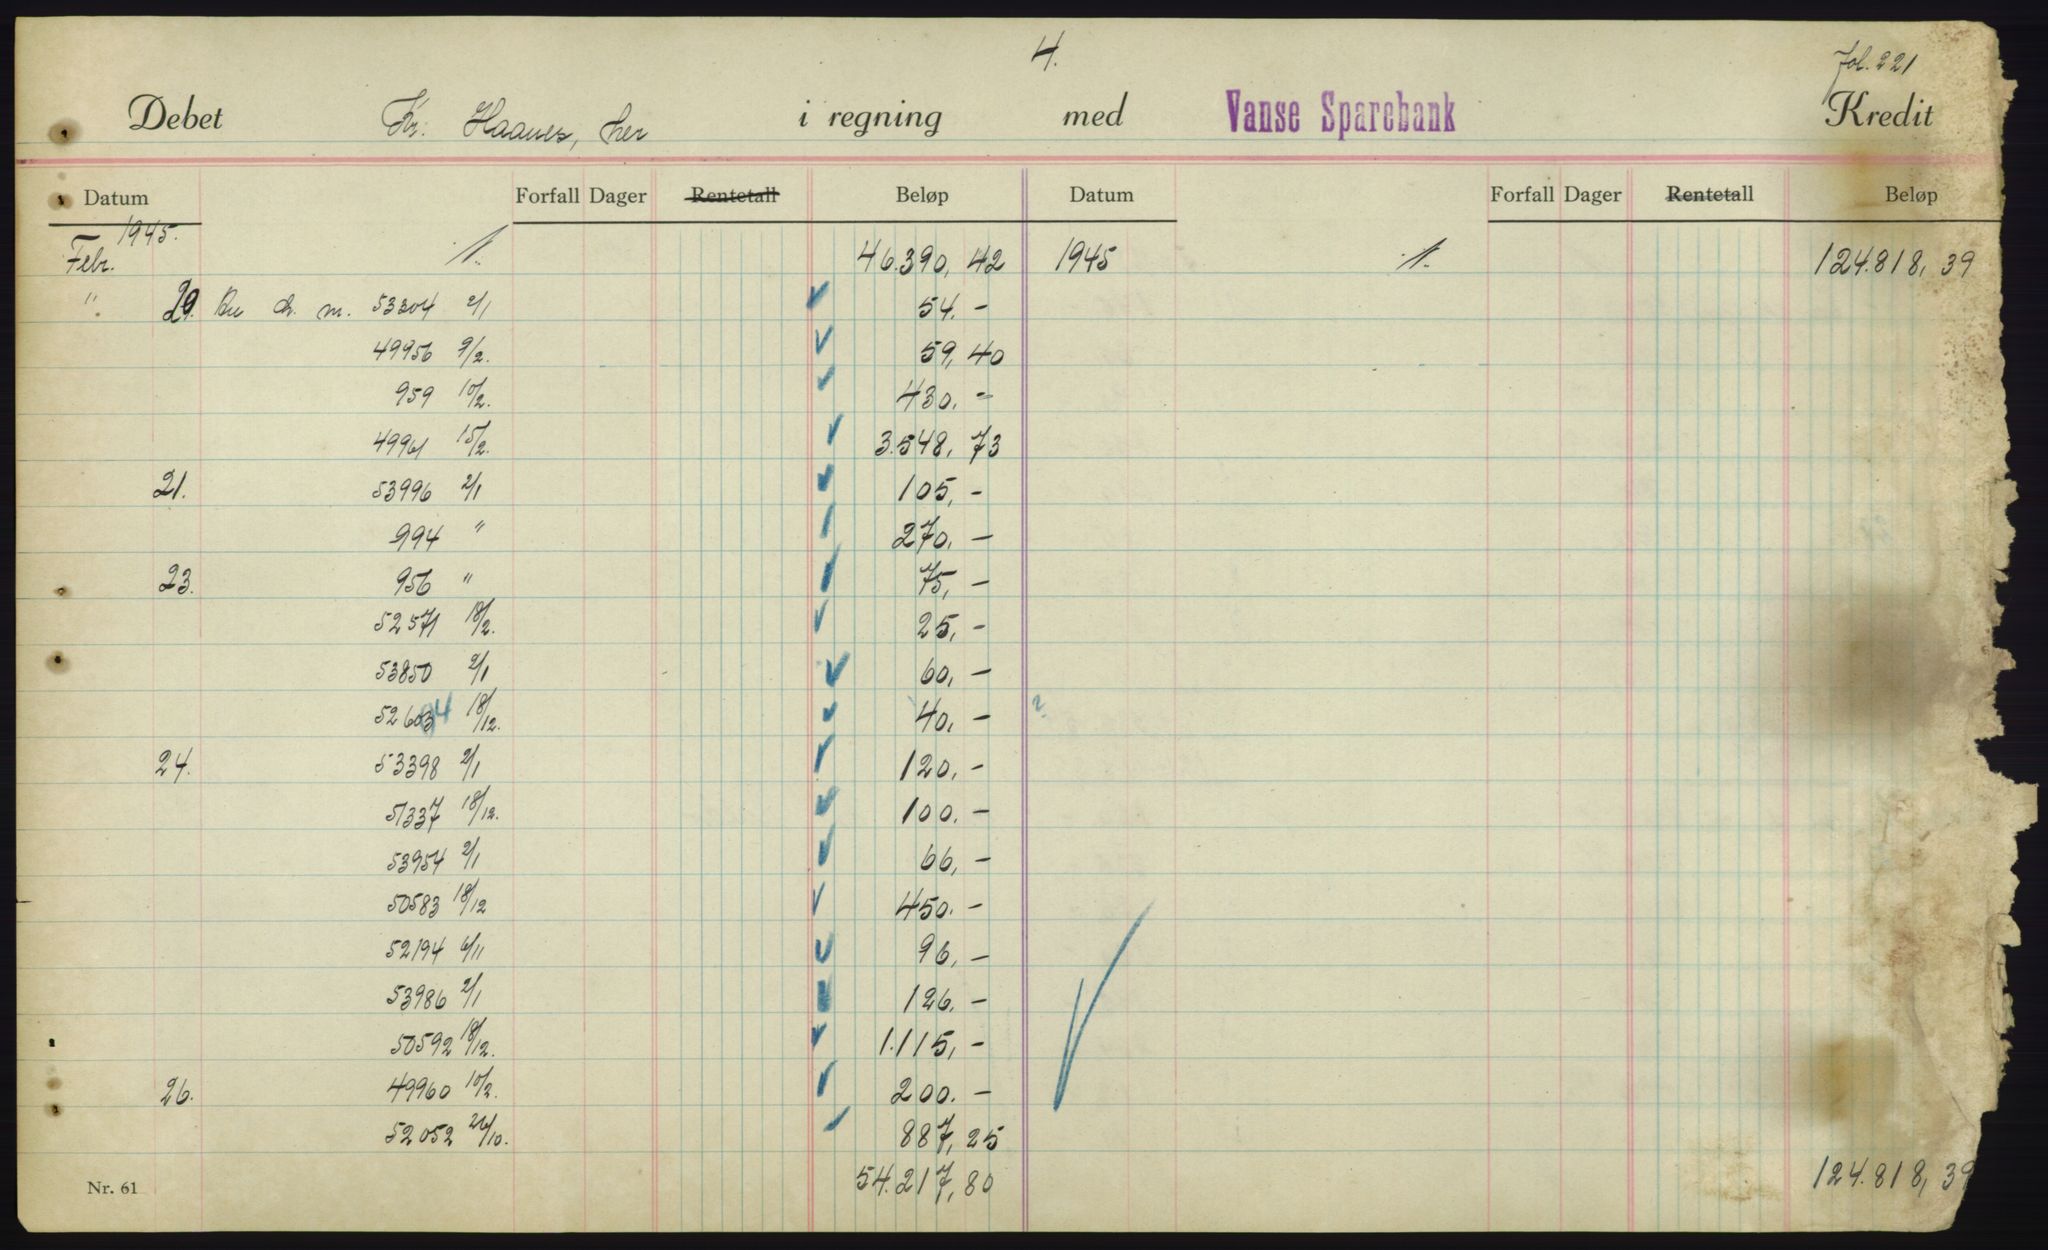 4.
Fol. 221
Debet Kr. Haanes, her i regning med Vanse Sparebank Kredit
Datum Forfall Dager Rentetall Beløp Datum Forfall Dager Rentetall Beløp
1945.
Febr. 46.390, 42 1945 124.818, 39
" 20. ch. m. 53304 2/1 54. -
49956 9/2. 59, 40
959 10/2. 430. -
49961 15/2. 3.548, 73
21. 53996 2/1 105, -
994 " 270. -
23. 956 " 75, -
52571 18/2. 25, -
53850 2/1 60, -
52604 18/12. 40, - ?
24. 53398 2/1 120. -
51337 18/12. 100. -
53954 2/1 66, -
50583 18/12 450. -
52194 6/11 96, -
53986 2/1 126. -
50592 18/12. 1.115, -
26. 49960 10/2. 200. -
52052 26/10. 887, 25
Nr. 61 54.217, 80 124.818, 39